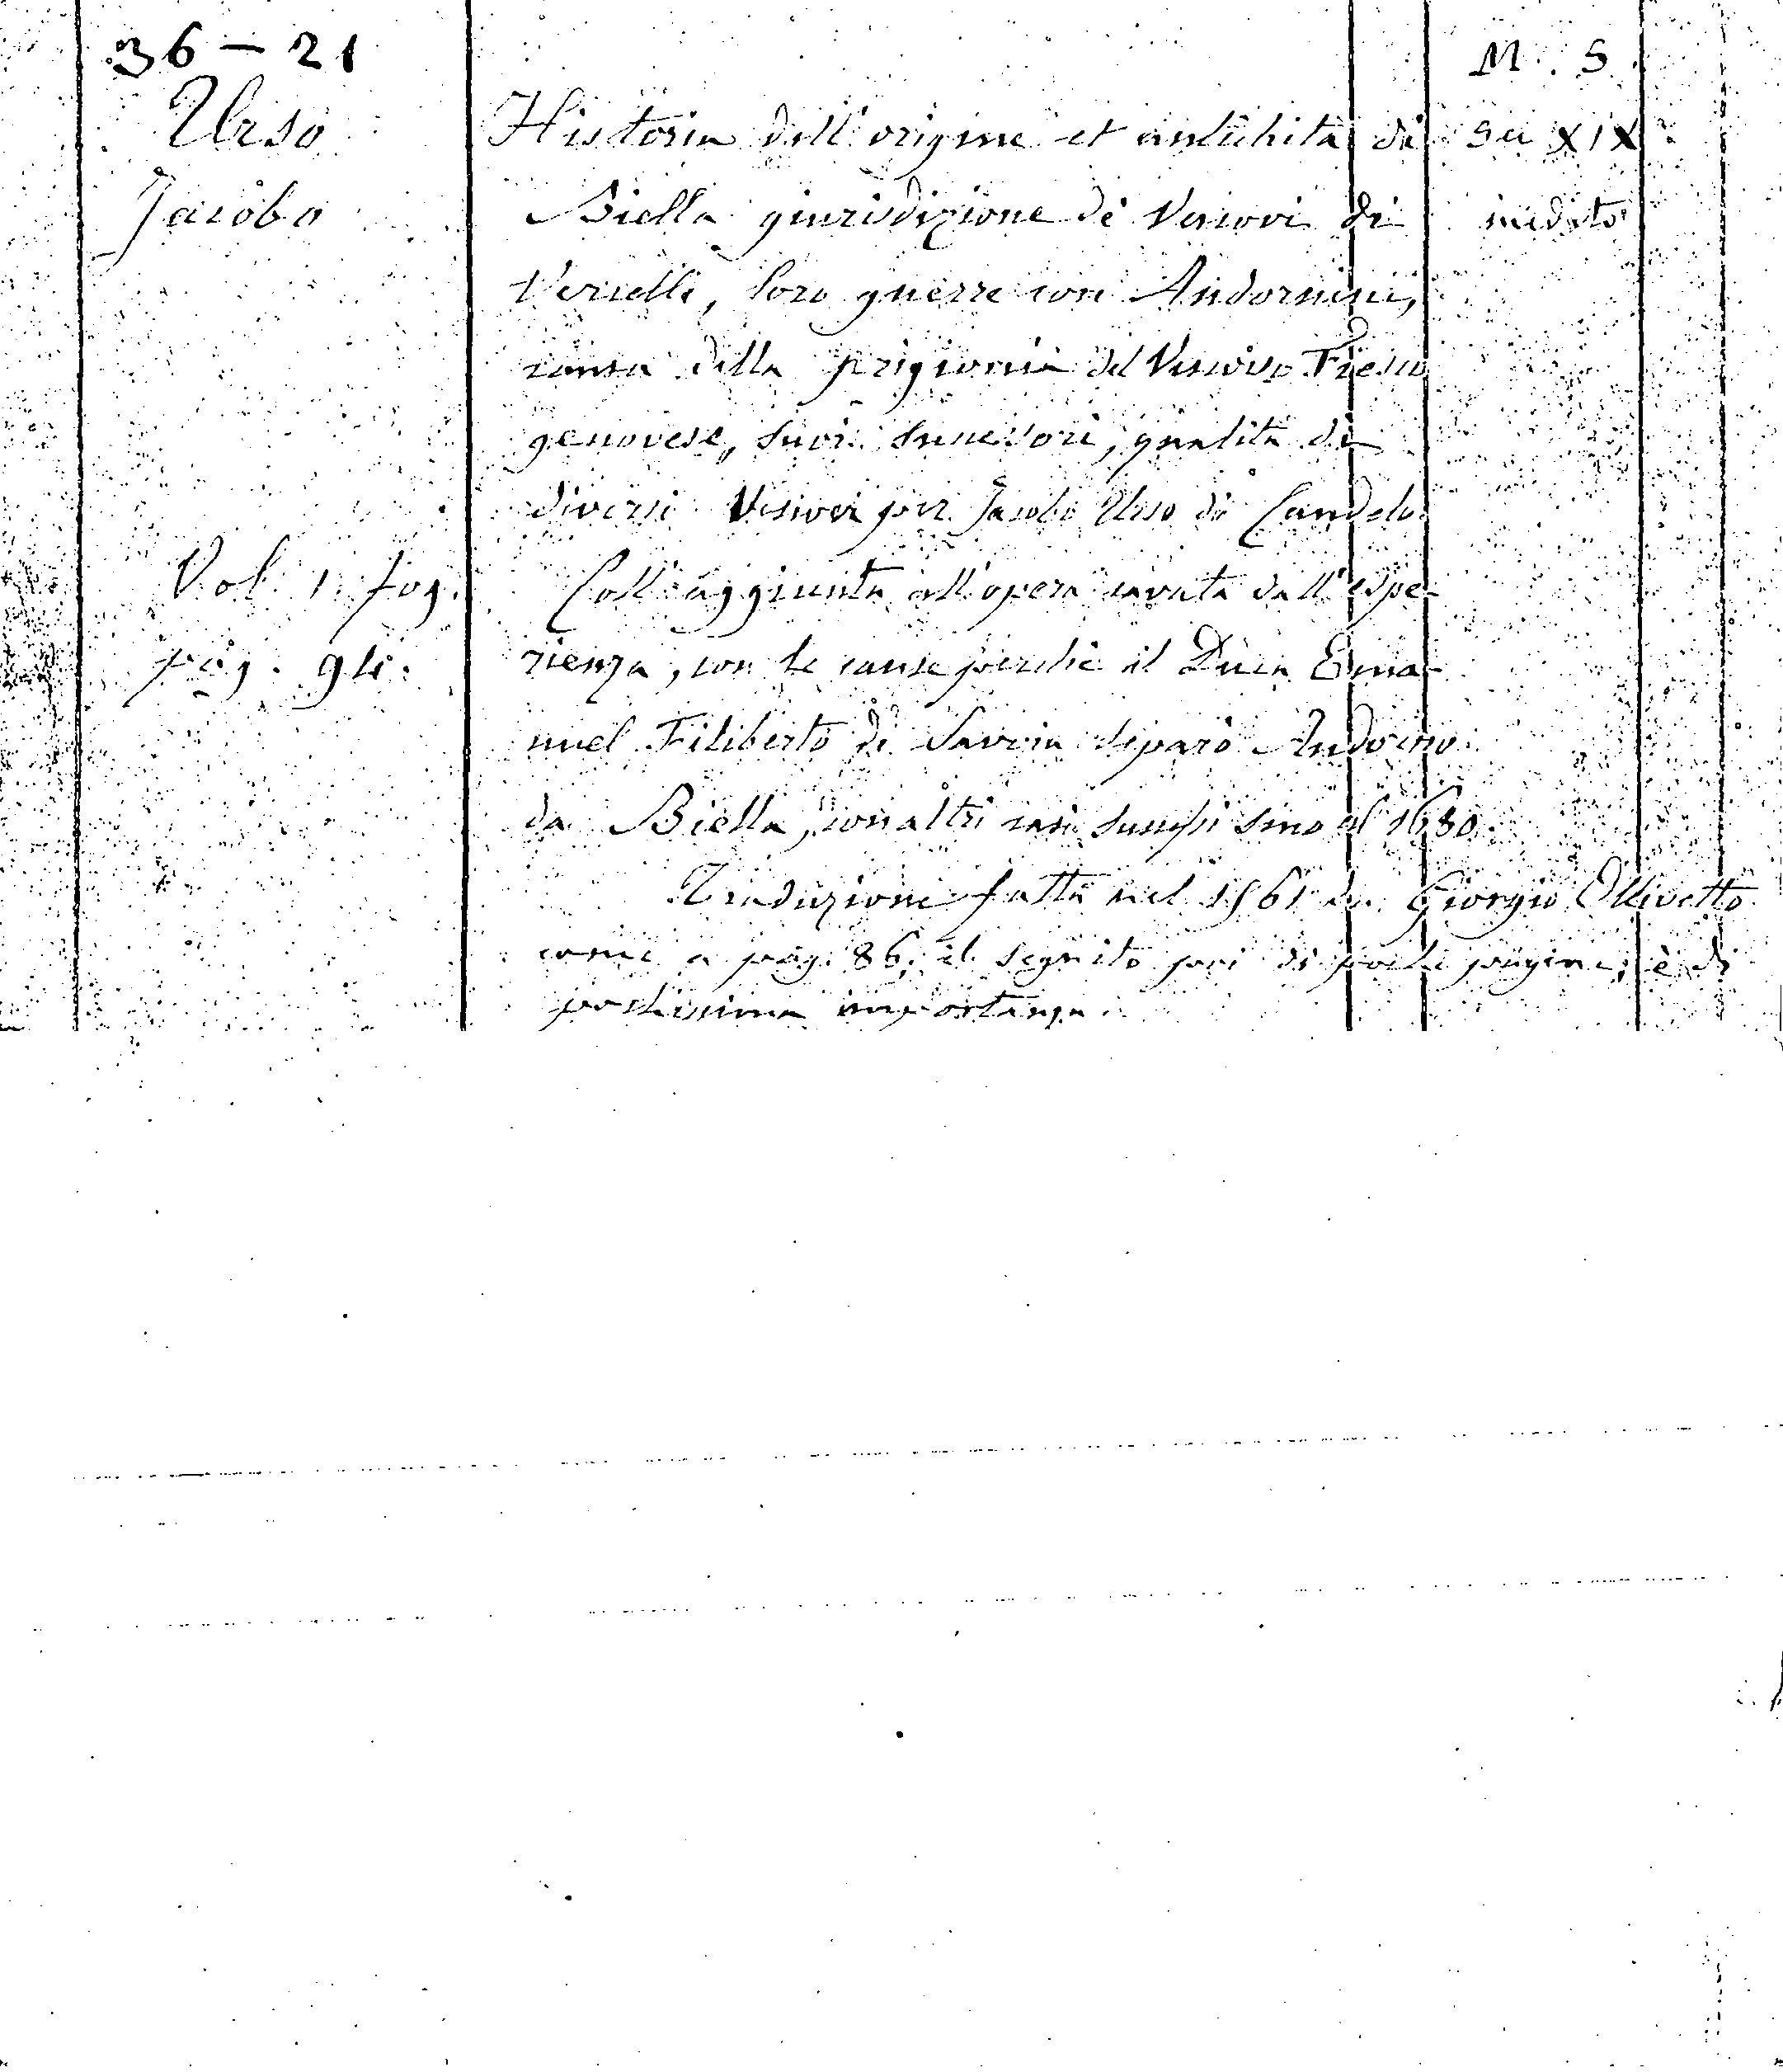 36 - 21
M. S.
Urso
Historia dell'origine et antichità di
Sec XIX
Jacobo
Biella giurisdizione de Vescovi di
inedito
Vercelli, loro guerre con Andornini,
causa della prigionia del Vescovo Fiesco
genovese, suoi successori, qualità di
diversi Vescovi per Jacobo Urso di Candelo.
Vol. 1. fog.
Coll'aggiunta all'opera cavata dall'espe-
pag. 94.
rienza, con le cause perchè il Duca Ema-
nuel Filiberto di Savoia separò Andorno
da Biella, con altri casi successi sino al 1680.
Traduzione fatta nel 1561 da Giorgio Ollivetto
come a pag. 86, il seguito poi di poche pagine, è di
pochissima importanza.